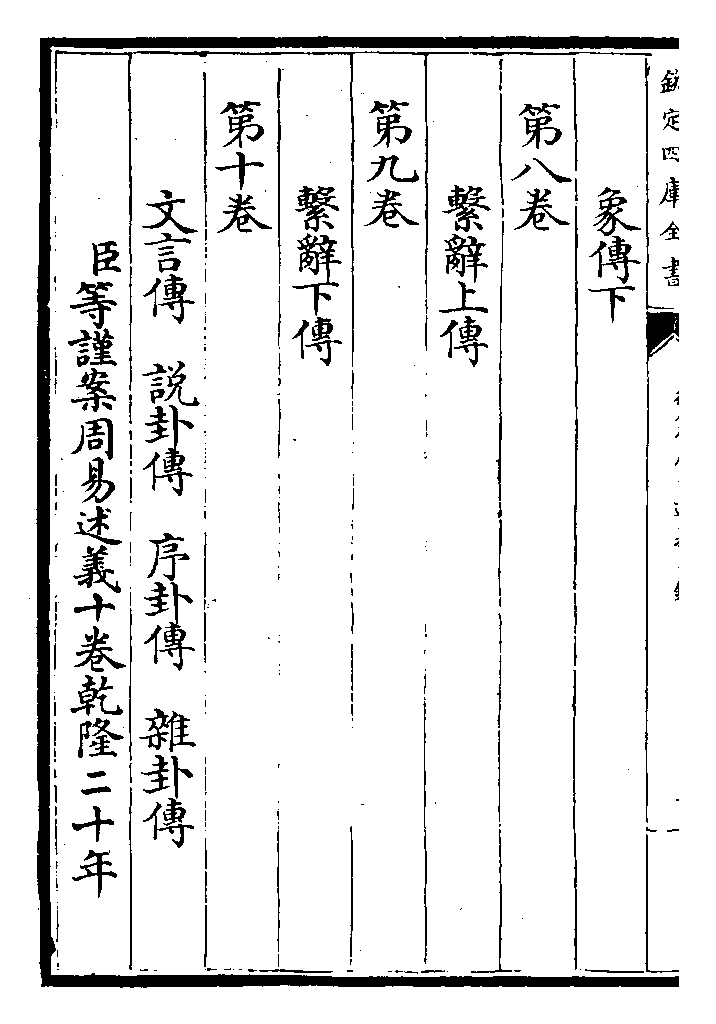 欽定四庫全書
象傳下
第八卷
繫辭上傳
第九卷
繫辭下傳
第十卷
文言傳　說卦傳　序卦傳　雜卦傳
臣等謹案周易述義十卷乾隆二十年